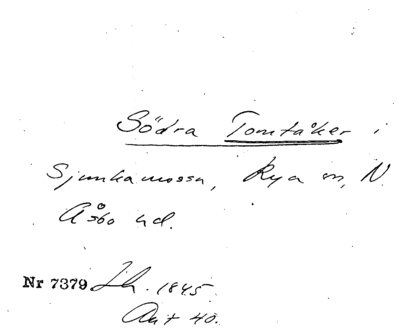 Södra Tomtåker i
Sjunkamossa, Rya sn, N.
Åsbo hd.
Nr 7379 Lh. 1845.
Ant 40.